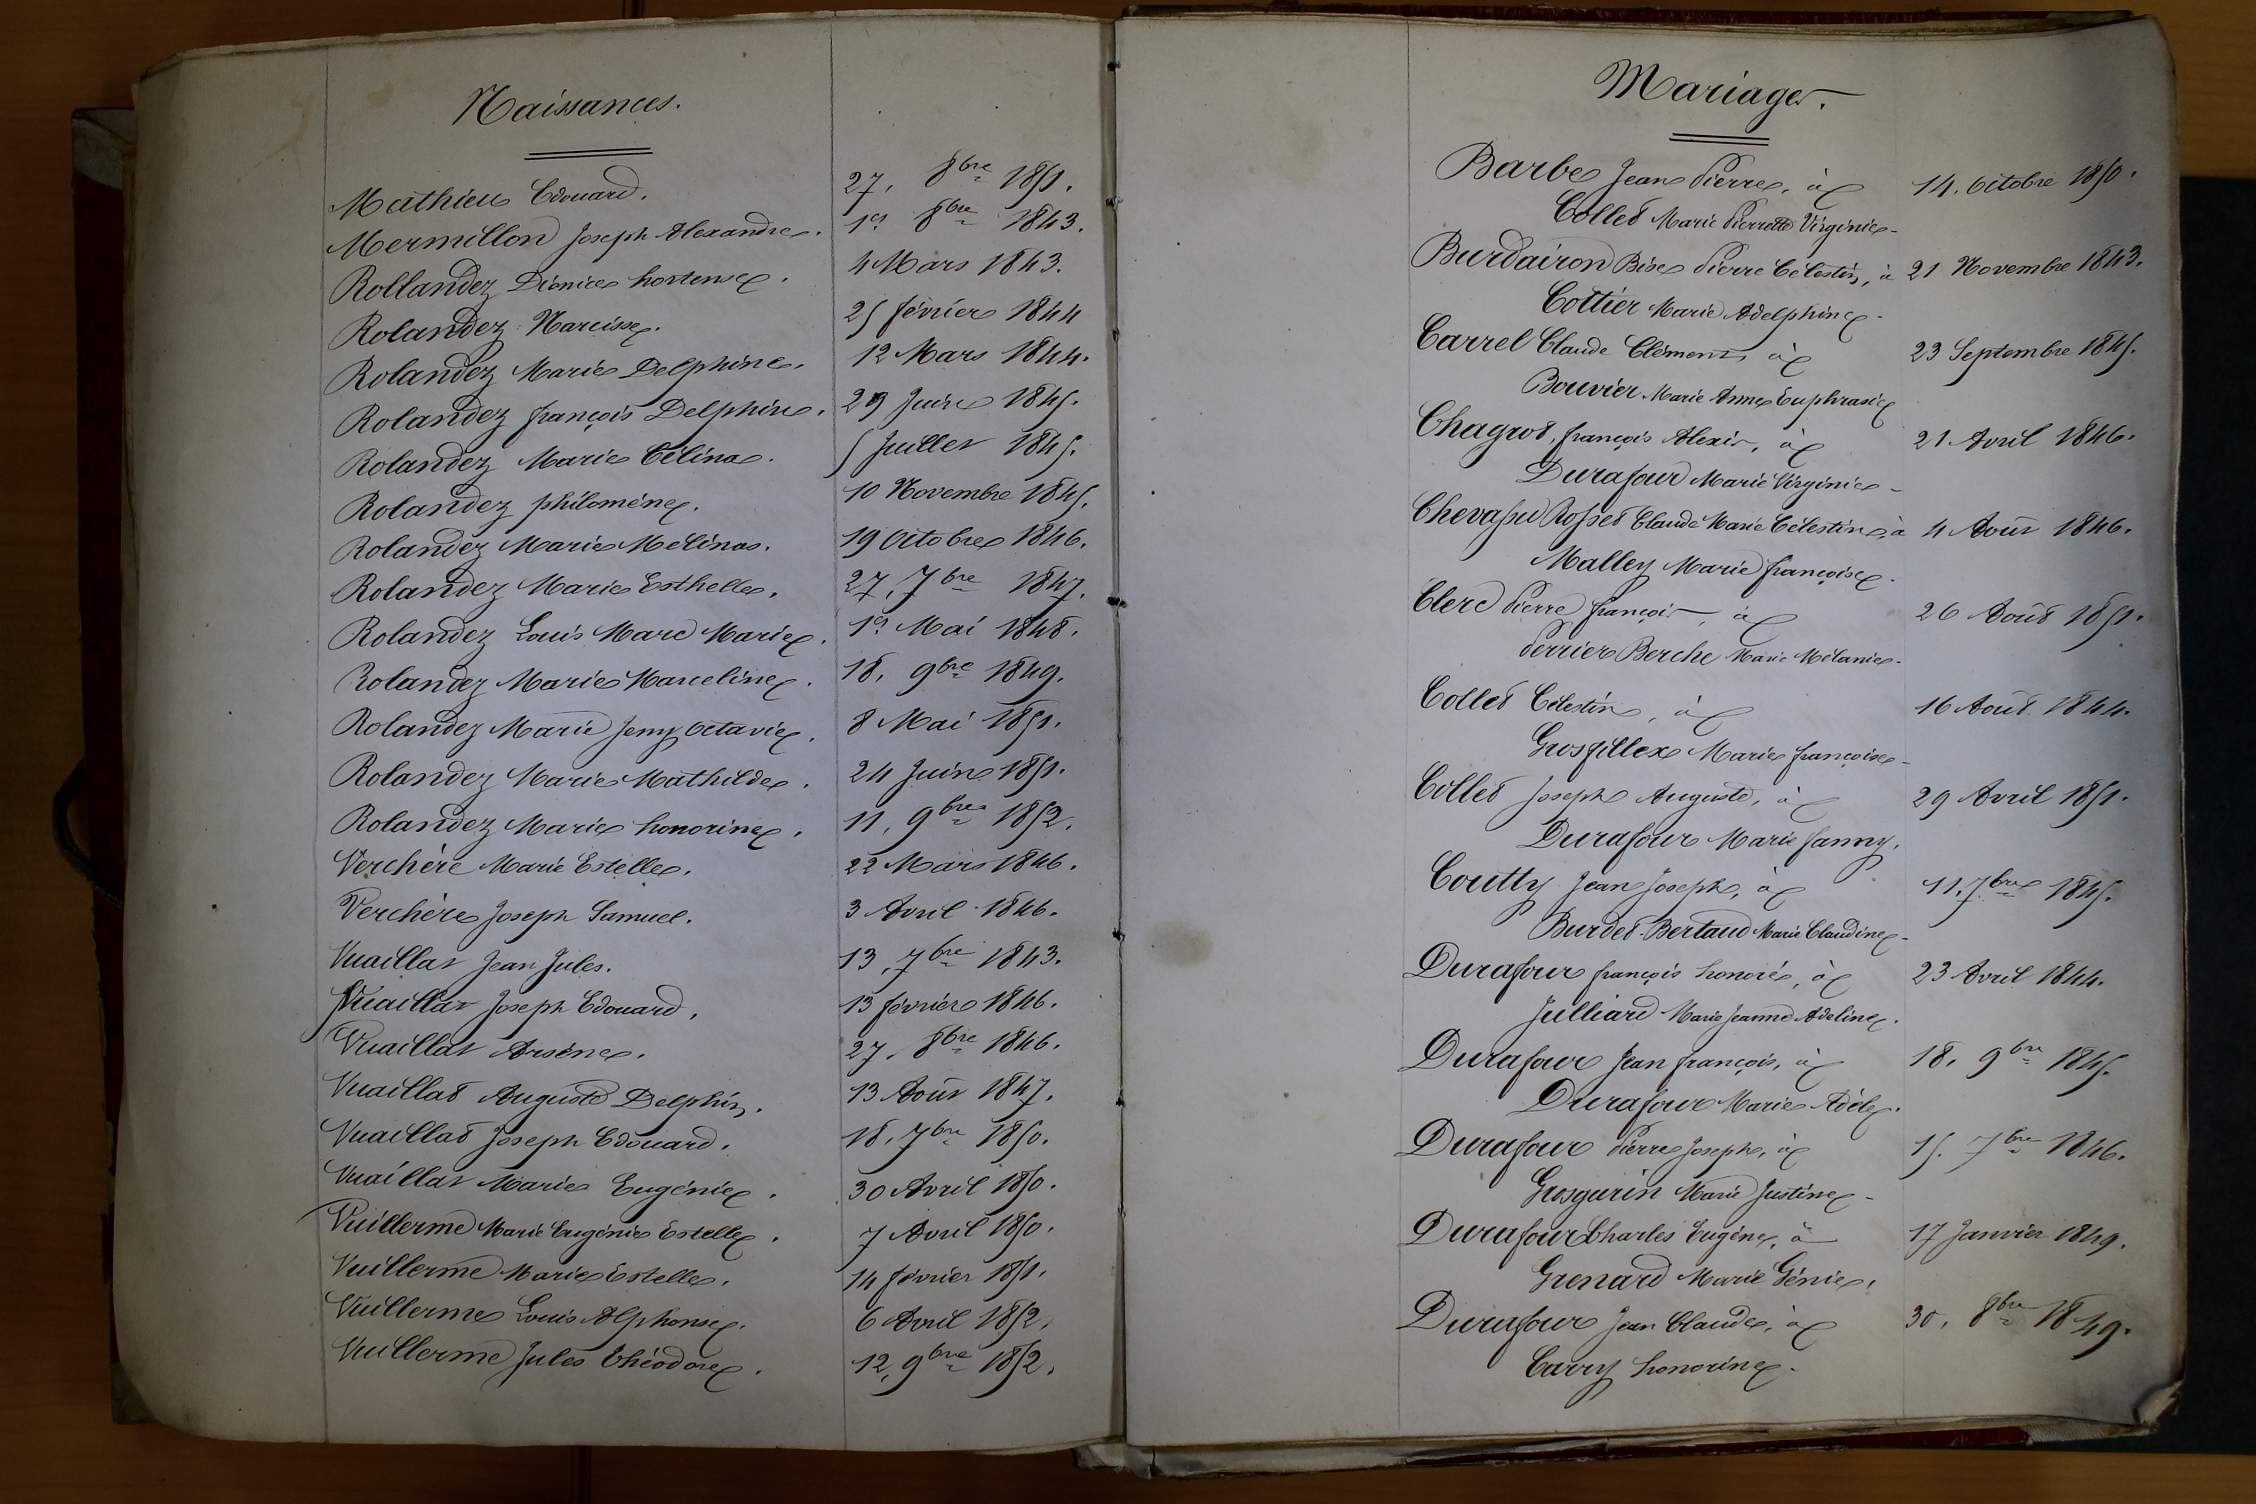 Naissances.
Mathieu Edouard. 27, 8bre 1851.
Mermillon Joseph Alexandre. 1er 8bre 1843.
Rollandez Dionice hortense. 4 Mars 1843.
Rolandez Narcisse. 25 février 1844
Rolandez Marie Delphine. 12 Mars 1844.
Rolandez françois Delphin. 29 Juin 1845.
Rolandez Marie Célina. 5 Juillet 1845.
Rolandez philomène. 10 Novembre 1845.
Rolandez Marie Mélina. 19 Octobre 1846.
Rolandez Marie Esthelle. 27, 7bre 1847.
Rolandez Louis Marc Marie. 1er Mai 1848.
Rolandez Marie Marceline. 18, 9bre 1849.
Rolandez Marie Jeny Octavie. 8 Mai 1851.
Rolandez Marie Mathilde. 24 Juin 1851.
Rolandez Marie honorine. 11, 9bre 1852.
Verchère Marie Estelle. 22 Mars 1846.
Verchère Joseph Samuel. 3 Avril 1846.
Vuaillat Jean Jules. 13, 7bre 1843.
Vuaillat Joseph Edouard. 13 février 1846.
Vuaillat Arsène. 27, 8bre 1846.
Vuaillat Auguste Delphin. 13 Août 1847.
Vuaillat Joseph Edouard. 18, 7bre 1850.
Vuaillat Marie Eugénie. 30 Avril 1850.
Vuillerme Marie Eugénie Estelle. 7 Avril 1850.
Vuillerme Marie Estelle. 14 février 1851.
Vuillerme Louis Alphonse. 6 Avril 1852.
Vuillerme Jules théodore. 12, 9bre 1852.
Mariages.
Barbe Jean Pierre, à 14, Octobre 1850.
Collet Marie Pierrette Virginie-
Burdairon Bise Pierre Célestin, à 21 Novembre 1843.
Cottier Marie Adelphine-
Carrel Claude Clément, à 23 Septembre 1845.
Bouvier Marie Anne Euphrasie
Chagrot, françois Alexis, à 21 Avril 1846.
Durafour Marie Virginie-
Chevassu Rosset Claude Marie Célestin, à 4 Août 1846.
Malley Marie françoise-
Clerc Pierre françois, à 26 Août 1851.
Perrier Berche Marie Mélanie-
Collet Célestin, à 16 Août 1844.
Grosfillex Marie françoise-
Collet Joseph Auguste, à 29 Avril 1851.
Durafour Marie fanny.
Coutty Jean Joseph, à 11, 7bre 1845.
Burdet-Bertaud Marie Claudine-
Durafour françois honoré, à 23 Avril 1844.
Julliard Marie Jeanne Adeline.
Durafour Jean françois, à 18, 9bre 1845.
Durafour Marie Adèle.
Durafour Pierre Joseph, à 15, 7bre 1846.
Grosgurin Marie Justine-
Durafour Charles Eugène, à 17 Janvier 1849.
Grenard Marie Génie.
Durafour Jean Claude, à 30, 8bre 1849.
Carry honorine-